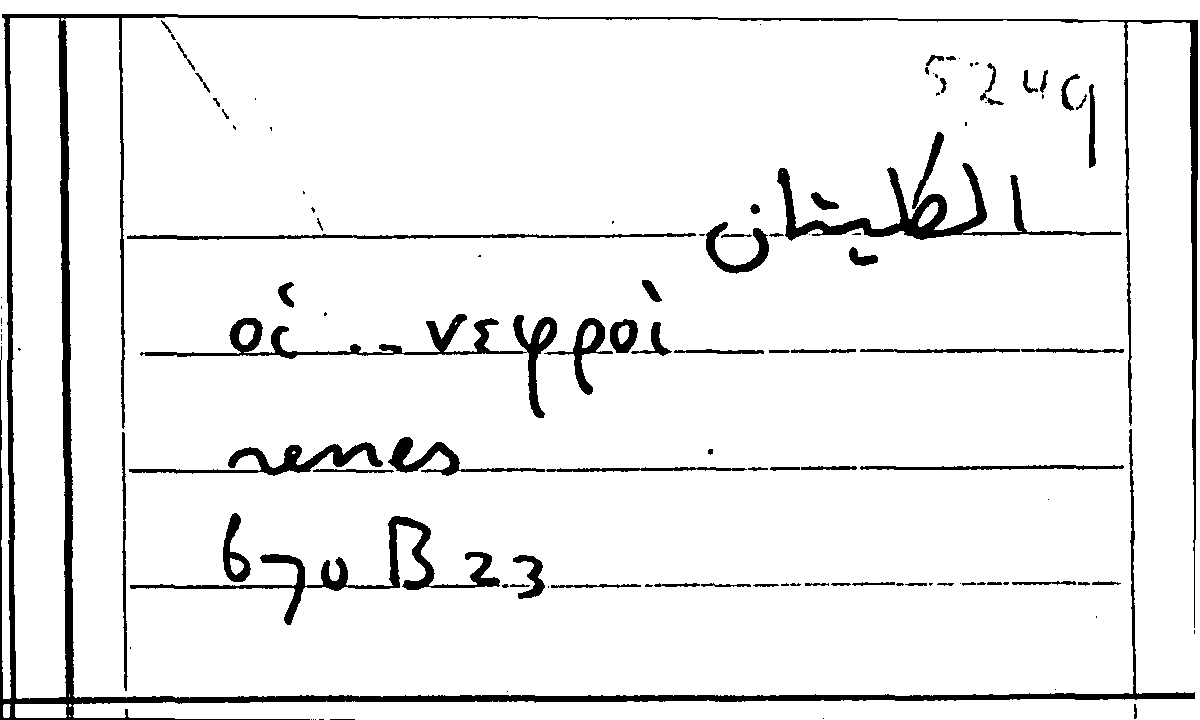 5249
الكليتان
οἱ .. νεφροὶ
renes
670 B 23